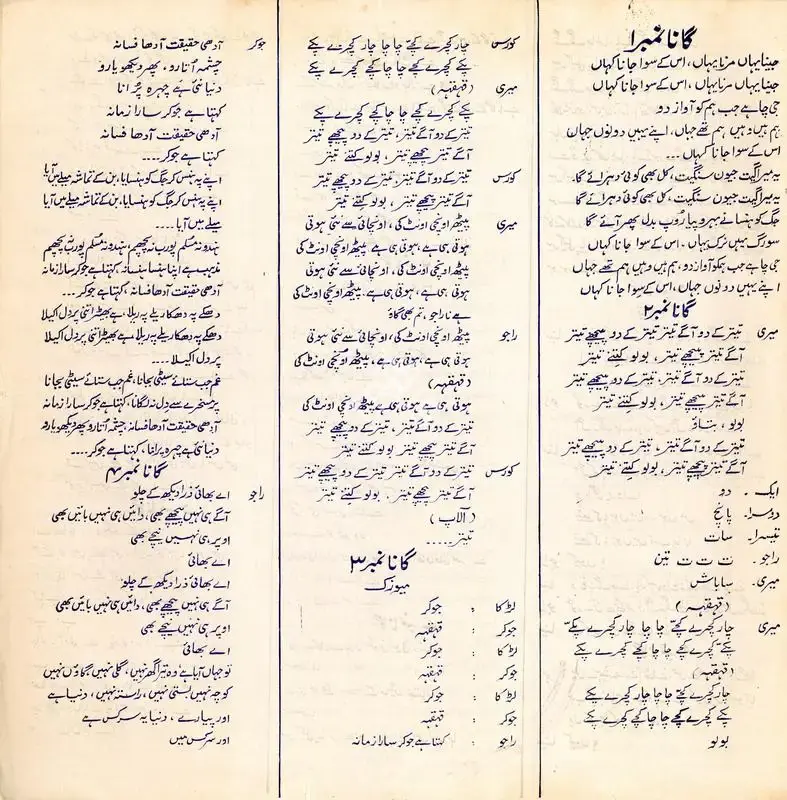 گانا نمبر ۱
جینا یہاں مرنا یہاں، اس کے سوا جانا کہاں
جینا یہاں مرنا یہاں، اس کے سوا جانا کہاں
جی چاہے جب ہم کو آواز دو
ہم ہیں وہیں ہم تھے جہاں، اپنے یہیں دونوں جہاں
اس کے سوا جانا کہاں ...
یہ میرا گیت جیون سنگیت، کل بھی کوئی دہرائے گا۔
یہ میرا گیت جیون سنگیت، کل بھی کوئی دہرائے گا
جگ کو ہنسانے بہروپیا رُوپ بدل پھر آئے گا
سورگ یہیں نرک یہاں۔ اس کے سوا جانا کہاں
جی چاہے جب ہمکو آواز دو، ہم ہیں وہیں ہم تھے جہاں
اپنے یہیں دونوں جہاں، اس کے سوا جانا کہاں
گانا نمبر ۲
میری تیتر کے دو آگے تیتر، تیتر کے دو پیچھے تیتر
آگے تیتر پیچھے تیتر، بولو کتنے تیتر
تیتر کے دو آگے تیتر، تیتر کے دو پیچھے تیتر
آگے تیتر پیچھے تیتر، بولو کتنے تیتر
بولو، بتاؤ
تیتر کے دو آگے تیتر، تیتر کے دو پیچھے تیتر
آگے تیتر پیچھے تیتر، بولو کتنے تیتر
ایک۔ دو
دوسرا۔ پانچ
تیسرا۔ سات
راجو۔ ت ت ت تین
میری۔ شاباش
(قہقہہ)
میری چار کچرے کچے چا چا چار کچرے پکے
پکے کچرے کچے چا چا کچے کچرے پکے
(قہقہہ)
چار کچرے کچے چا چا چار کچرے پکے
پکے کچرے کچے چا چا کچے کچرے پکے
بولو
کورس چار کچرے کچے چا چا چار کچرے پکے
پکے کچرے کچے چا چا کچے کچرے پکے
میری (قہقہہ)
پکے کچرے کچے چا چا کچے کچرے پکے
تیتر کے دو آگے تیتر، تیتر کے دو پیچھے تیتر
آگے تیتر پیچھے تیتر، بولو کتنے تیتر
کورس تیتر کے دو آگے تیتر، تیتر کے دو پیچھے تیتر
آگے تیتر پیچھے تیتر، بولو کتنے تیتر
میری پیٹھ اونچی اونٹ کی، اونچائی سے نئی ہوتی
ہوتی ہی ہے، ہوتی ہی ہے پیٹھ اونچی اونٹ کی
پیٹھ اونچی اونٹ کی، اونچائی سے نئی ہوتی
ہوتی ہی ہے، ہوتی ہی ہے۔ پیٹھ اونچی اونٹ کی
ہے نا راجو، تم بھی گاؤ
راجو پیٹھ اونچی اونٹ کی، اونچائی سے نئی ہوتی
ہوتی ہی ہے، ہوتی ہی ہے، پیٹھ اونچی اونٹ کی
(قہقہہ)
ہوتی ہی ہے ہوتی ہی ہے پیٹھ اونچی اونٹ کی
تیتر کے دو آگے تیتر، تیتر کے دو پیچھے تیتر
آگے تیتر پیچھے تیتر بولو کتنے تیتر
کورس تیتر کے دو آگے تیتر تیتر کے دو پیچھے تیتر
آگے تیتر پیچھے تیتر۔ بولو کتنے تیتر
(آلاپ)
تیتر.....
گانا نمبر ۳
میوزک
لڑکا : جوکر
جوکر : قہقہہ
لڑکا : جوکر
جوکر : قہقہہ
لڑکا : جوکر
جوکر : قہقہہ
راجو : کہتا ہے جوکر سارا زمانہ
جوکر آدھی حقیقت آدھا فسانہ
چشمہ اتارو، پھر دیکھو یارو
دنیا نئی ہے چہرہ پُرانا
کہتا ہے جوکر سارا زمانہ
آدھی حقیقت آدھا فسانہ
کہتا ہے جوکر....
اپنے پہ ہنس کر جگ کو ہنسایا، بن کے تماشہ میلے میں آیا
اپنے پہ ہنس کر جگ کو ہنسایا، بن کے تماشہ میلے میں آیا
میلے میں آیا....
ہندو نہ مسلم پورب نہ پچھم، ہندو نہ مسلم پورب نہ پچھم
مذہب ہے اپنا ہنسنا ہنسانہ، کہتا ہے جوکر سارا زمانہ
آدھی حقیقت آدھا فسانہ، کہتا ہے جوکر...
دھکے پہ دھکا ریلے پہ ریلا، ہے بھیڑ اتنی پر دل اکیلا
دھکے پہ دھکا ریلے پہ ریلا، ہے بھیڑ اتنی پر دل اکیلا
پر دل اکیلا....
غم جب ستائے سیٹی بجانا، غم جب ستائے سیٹی بجانا
پر مسخرے سے دل نہ لگانا، کہتا ہے جوکر سارا زمانہ
آدھی حقیقت آدھا فسانہ، چشمہ اتارو پھر دیکھو یارو
دنیا نئی ہے چہرہ پرانا، کہتا ہے جوکر....
گانا نمبر ۴
راجو اے بھائی ذرا دیکھ کے چلو
آگے ہی نہیں پیچھے بھی، دائیں ہی نہیں بائیں بھی
اوپر ہی نہیں نیچے بھی
اے بھائی
اے بھائی ذرا دیکھ کے چلو
آگے ہی نہیں پیچھے بھی، دائیں ہی نہیں بائیں بھی
اوپر ہی نہیں نیچے بھی
اے بھائی
تو جہاں آیا ہے وہ تیرا گھر نہیں، گلی نہیں گاؤں نہیں
کوچہ نہیں بستی نہیں، راستہ نہیں، دنیا ہے
اور پیارے، دنیا یہ سرکس ہے
اور سرکس میں